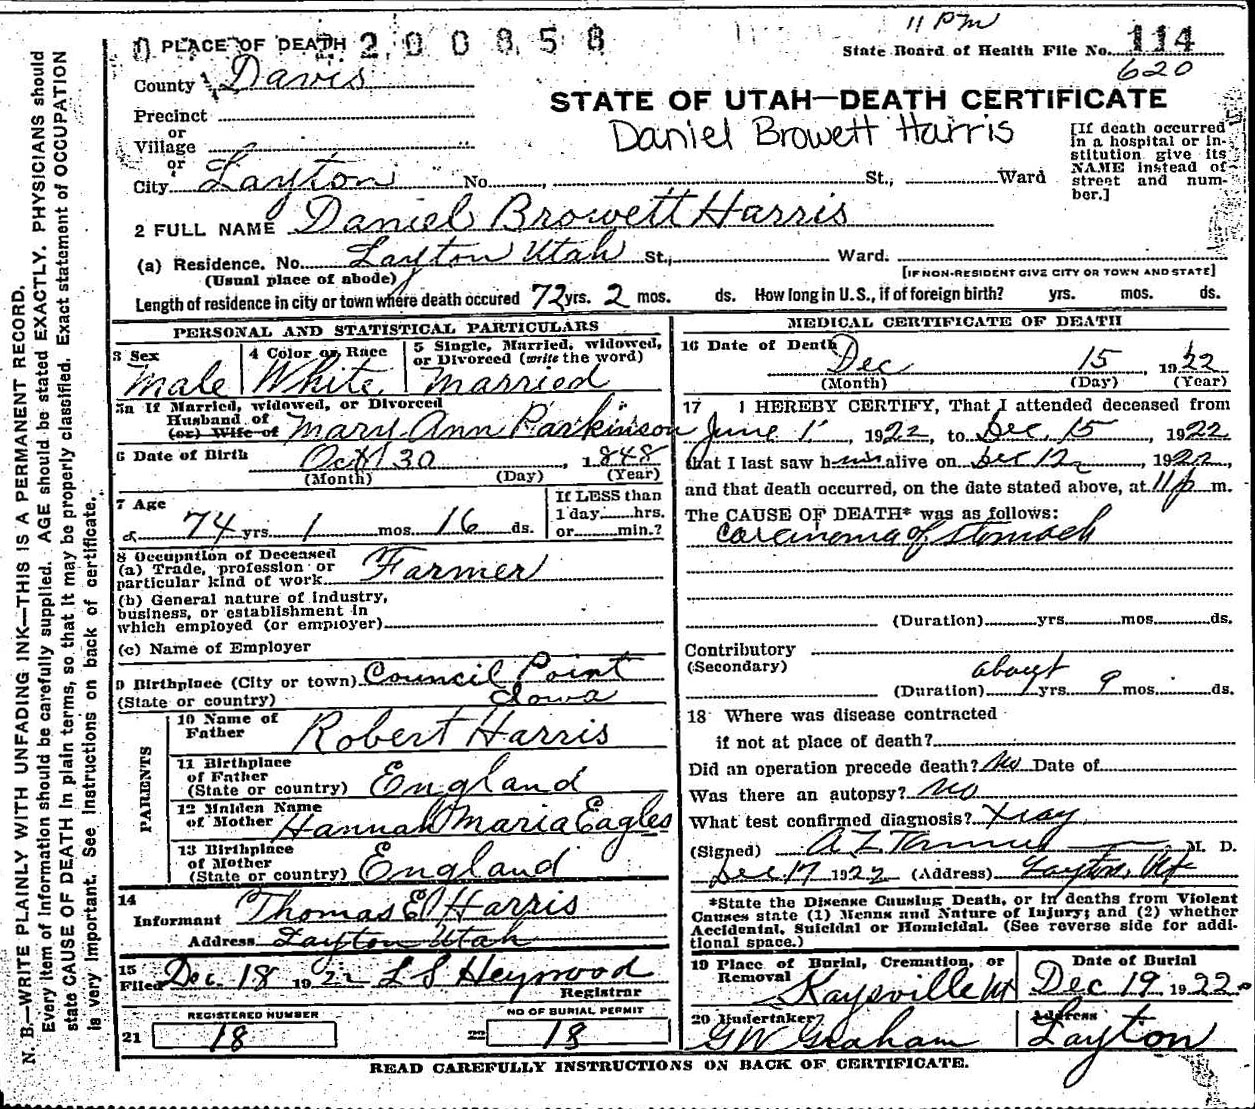 11 PM
0 2200858
PLACE OF DEATH
State Board of Health File No. 114
620
County Davis
STATE OF UTAH—DEATH CERTIFICATE
Precinct
or
Daniel Browett Harris
Village
or
City Layton No. St., Ward
[If death occurred in a hospital or institution give its NAME instead of street and number.]
2 FULL NAME Daniel Browett Harris
(a) Residence. No. Layton Utah St., Ward.
(Usual place of abode)
[IF NON-RESIDENT GIVE CITY OR TOWN AND STATE]
Length of residence in city or town where death occured 72 yrs. 2 mos. ds. How long in U.S., if of foreign birth? yrs. mos. ds.
PERSONAL AND STATISTICAL PARTICULARS
3 Sex
Male
4 Color or Race
White
5 Single, Married, widowed, or Divorced (write the word)
Married
5a If Married, widowed, or Divorced
Husband of
(or) Wife of Mary Ann Parkinson
6 Date of Birth Oct 30 1848
(Month) (Day) (Year)
7 Age
74 yrs. 1 mos. 16 ds.
If LESS than
1 day hrs.
or min.?
8 Occupation of Deceased
(a) Trade, profession or
particular kind of work Farmer
(b) General nature of industry,
business, or establishment in
which employed (or employer)
(c) Name of Employer
9 Birthplace (City or town) Council Point
(State or country) Iowa
PARENTS
10 Name of
Father Robert Harris
11 Birthplace
of Father
(State or country) England
12 Maiden Name
of Mother Hannah Maria Eagles
13 Birthplace
of Mother
(State or country) England
14
Informant Thomas E Harris
Address Layton Utah
15
Filed Dec. 18 1922 L S Heywood
Registrar
REGISTERED NUMBER
21 18
NO OF BURIAL PERMIT
22 18
MEDICAL CERTIFICATE OF DEATH
16 Date of Death Dec 15, 1922
(Month) (Day) (Year)
17 I HEREBY CERTIFY, That I attended deceased from
June 1, 1922, to Dec. 15, 1922
that I last saw him alive on Dec 12, 1922,
and that death occurred, on the date stated above, at 11 p m.
The CAUSE OF DEATH* was as follows:
Carcinoma of Stomach
(Duration) yrs. mos. ds.
Contributory
(Secondary)
about
(Duration) yrs. 9 mos. ds.
18 Where was disease contracted
if not at place of death?
Did an operation precede death? No Date of
Was there an autopsy? No
What test confirmed diagnosis? Xray
(Signed) A Z Tanner M. D.
Dec 17 1922 (Address) Layton, Ut
*State the Disease Causing Death, or in deaths from Violent
Causes state (1) Means and Nature of Injury; and (2) whether
Accidental, Suicidal or Homicidal. (See reverse side for addi-
tional space.)
19 Place of Burial, Cremation, or
Removal
Kaysville Ut
Date of Burial
Dec 19 1922
20 Undertaker
G W Graham
Address
Layton
READ CAREFULLY INSTRUCTIONS ON BACK OF CERTIFICATE.
N. B.—WRITE PLAINLY WITH UNFADING INK—THIS IS A PERMANENT RECORD.
Every item of information should be carefully supplied. AGE should be stated EXACTLY. PHYSICIANS should
state CAUSE OF DEATH in plain terms, so that it may be properly classified. Exact statement of OCCUPATION
is very important. See instructions on back of certificate.